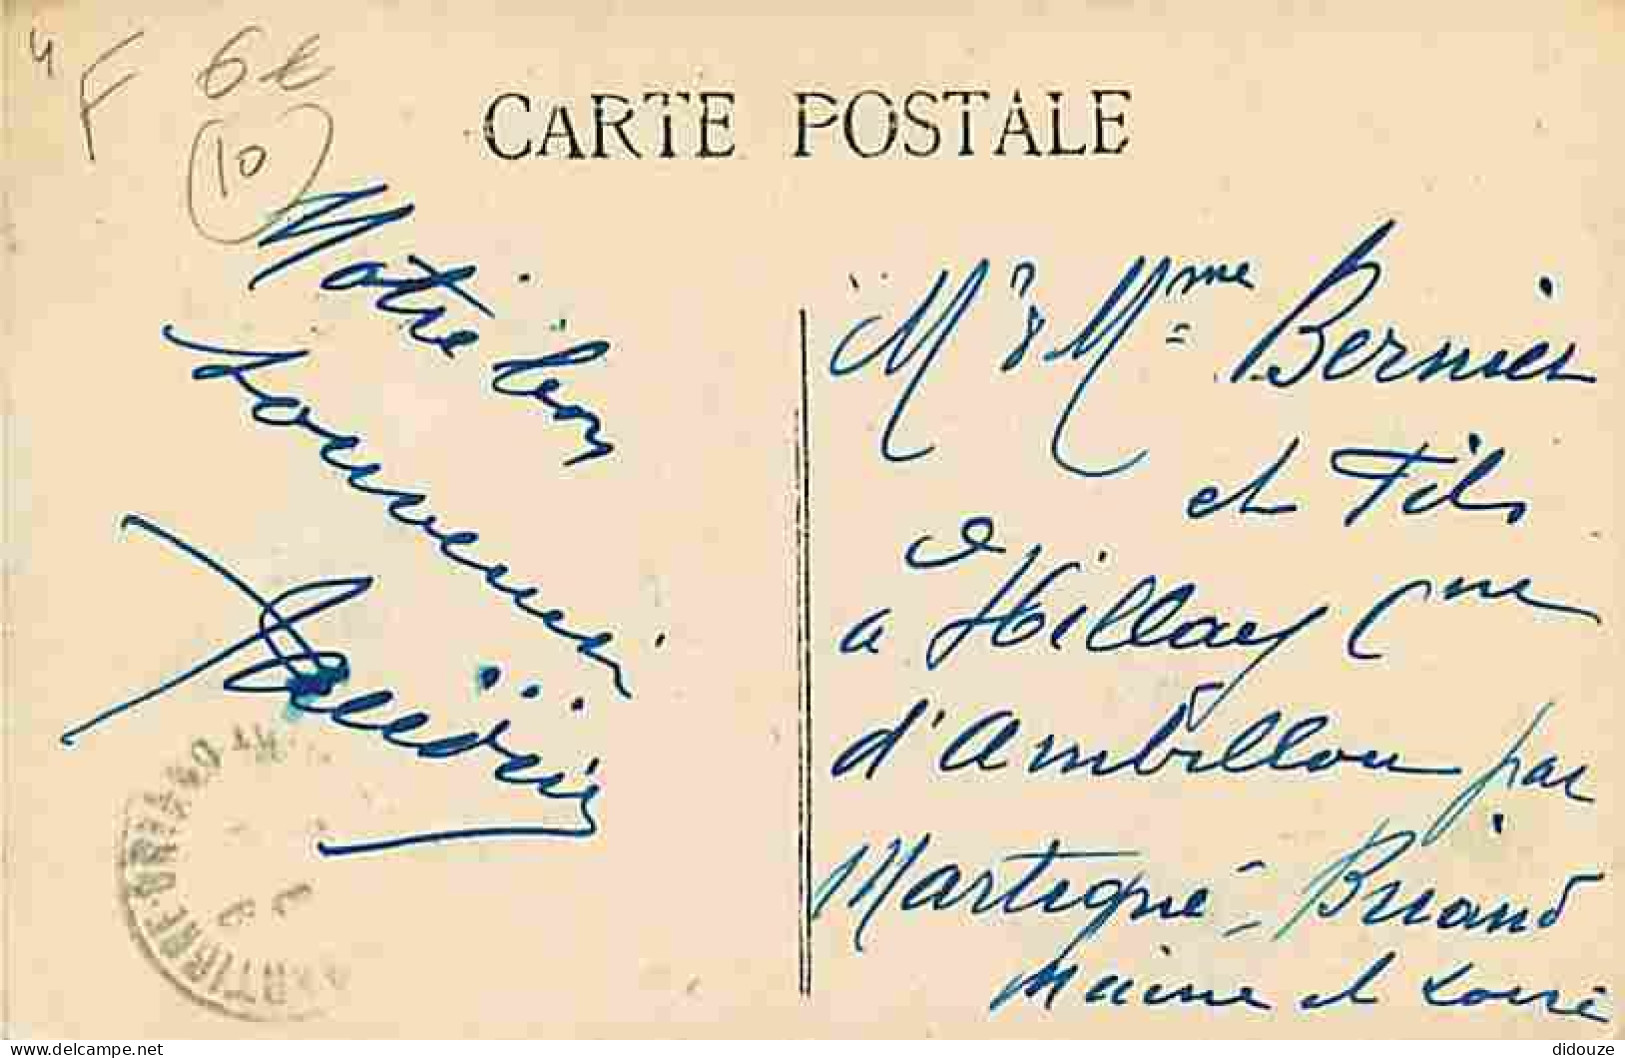 4 F 6€
(10)
CARTE POSTALE
Notre bon
souvenir
Mr & Mme Bernier
et Fils
a Hillay Cne
d'Ambillou par
Martigné-Briand
Maine et Loire
didouze